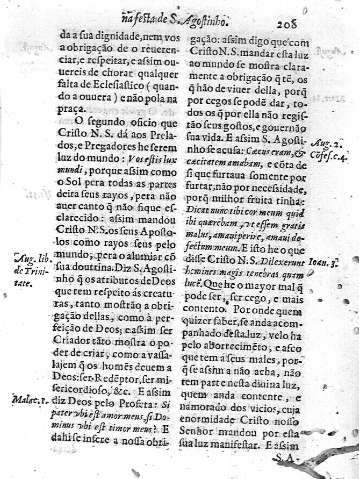 na festa de S. Agostinho.
208
da a sua dignidade, nem vos
a obrigação de o reueren-
ciar, e respeitar, e assim ou-
uereis de chorar qualquer
falta de Eclesiastico (quan-
do a ouuera) e não pola na
praça.
O segundo oficio que
Cristo N. S. dá aos Prela-
dos, e Pregadores he serem
luz do mundo: Vos estis lux
mundi, porque assim como
o Sol pera todas as partes
deita seus rayos, pera não
auer canto q̃ não fique es-
clarecido: assim mandou
Cristo N. S. os seus Aposto-
los como rayos seus pelo
mundo, pera o alumiar cõ
sua doutrina. Diz S. Agosti-
nho q̃ os atributos de Deos
que tem respeito ás creatu-
ras, tanto mostrão a obri-
gação dellas, como à per-
feição de Deos; e assim ser
Criador tãto mostra o po-
der de criar, como a vassa-
lajem q̃ os homẽs deuem a
Deos: ser Redẽptor, ser mi-
sericordioso, &c. E assim
diz Deos pelo Profeta: Si
pater vbi est amor meus, si Do-
minus vbi est timor meus? E
dahi se infere a nossa obri-
Aug. lib.
de Trini-
tate.
Malac. 1.
gação: assim digo que com
Cristo N. S. mandar esta luz
ao mundo se mostra clara-
mente a obrigação q̃ tẽ, os
q̃ hão de viuer della, porq̃
por cegos se podẽ dar, to-
dos os q̃ por ella não regis-
tão seus gostos, e gouernão
sua vida. E assim S. Agosti-
nho se acusa: Cæcus eram, &
cæcitatem amabam, e cõta de
si que furtaua somente por
furtar, não por necessidade,
porq̃ milhor fruita tinha:
Dicat nunc tibi cor meum quid
ibi quærebam, vt essem gratis
malus, amaui perire, amaui de-
fectum meum. E isto he o que
disse Cristo N. S. Dilexerunt
homines magis tenebras quam
lucẽ. Que he o mayor mal q̃
pode ser, ser cego, e mais
contente. Por onde quem
quizer saber, se anda acom-
panhado desta luz, velo ha
pelo aborrecimẽto, e asco
que tem a seus males, por-
q̃ se assim a não acha, não
tem parte nesta diuina luz,
quem anda contente, e
namorado dos vicios, cuja
enormidade Cristo nosso
Senhor mandou por esta
sua luz manifestar. E assim
S. A-
Aug. 2.
Cõfes. c. 4.
Ioan. 3.